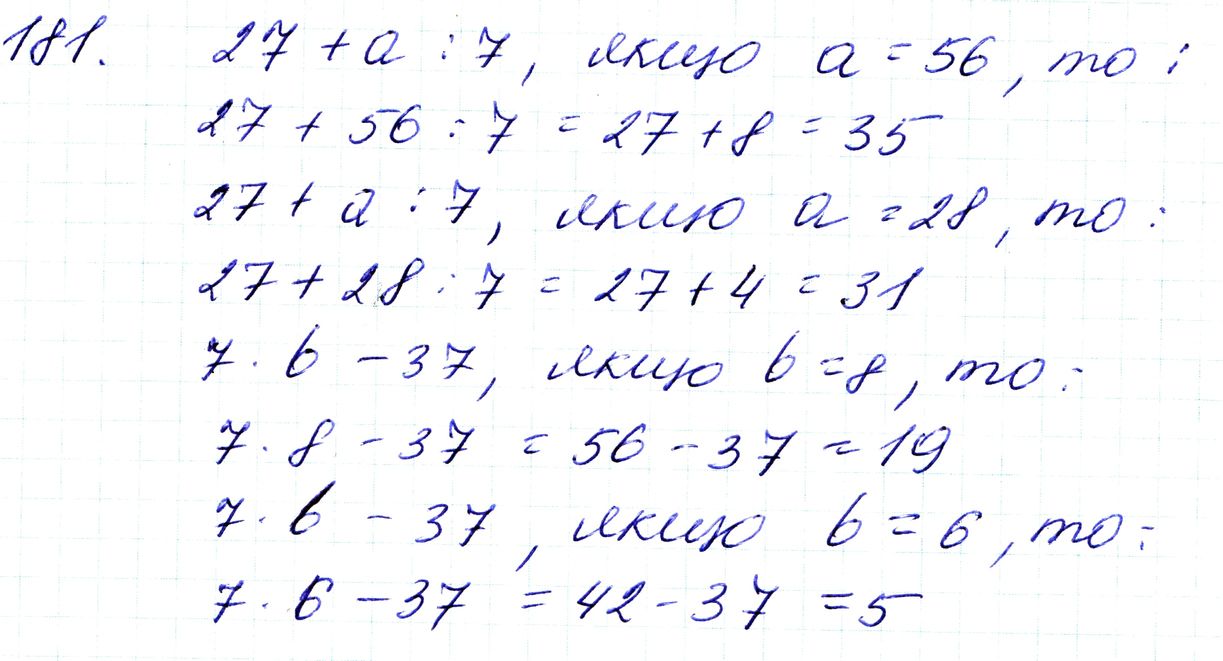 181. 27 + a : 7, якщо a = 56, то :
27 + 56 : 7 = 27 + 8 = 35
27 + a : 7, якщо a = 28, то :
27 + 28 : 7 = 27 + 4 = 31
7 · b - 37, якщо b = 8, то :
7 · 8 - 37 = 56 - 37 = 19
7 · b - 37, якщо b = 6, то :
7 · 6 - 37 = 42 - 37 = 5